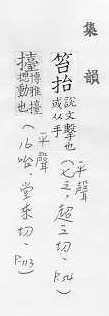 集韻
笞抬
說文擊也
或从手
平聲(七之,超之切,P.54)
擡
博雅擡
動也
平聲(16咍,堂來切,P.113)